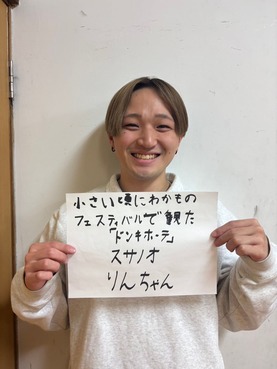 小さい頃にわかもの
フェスティバルで観た
「ドンキホーテ」
スサノオ
りんちゃん